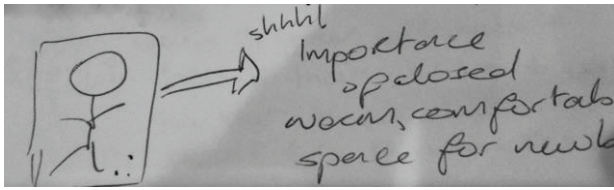 shhhh
Importance
of closed
warm, comfortab
space for newb